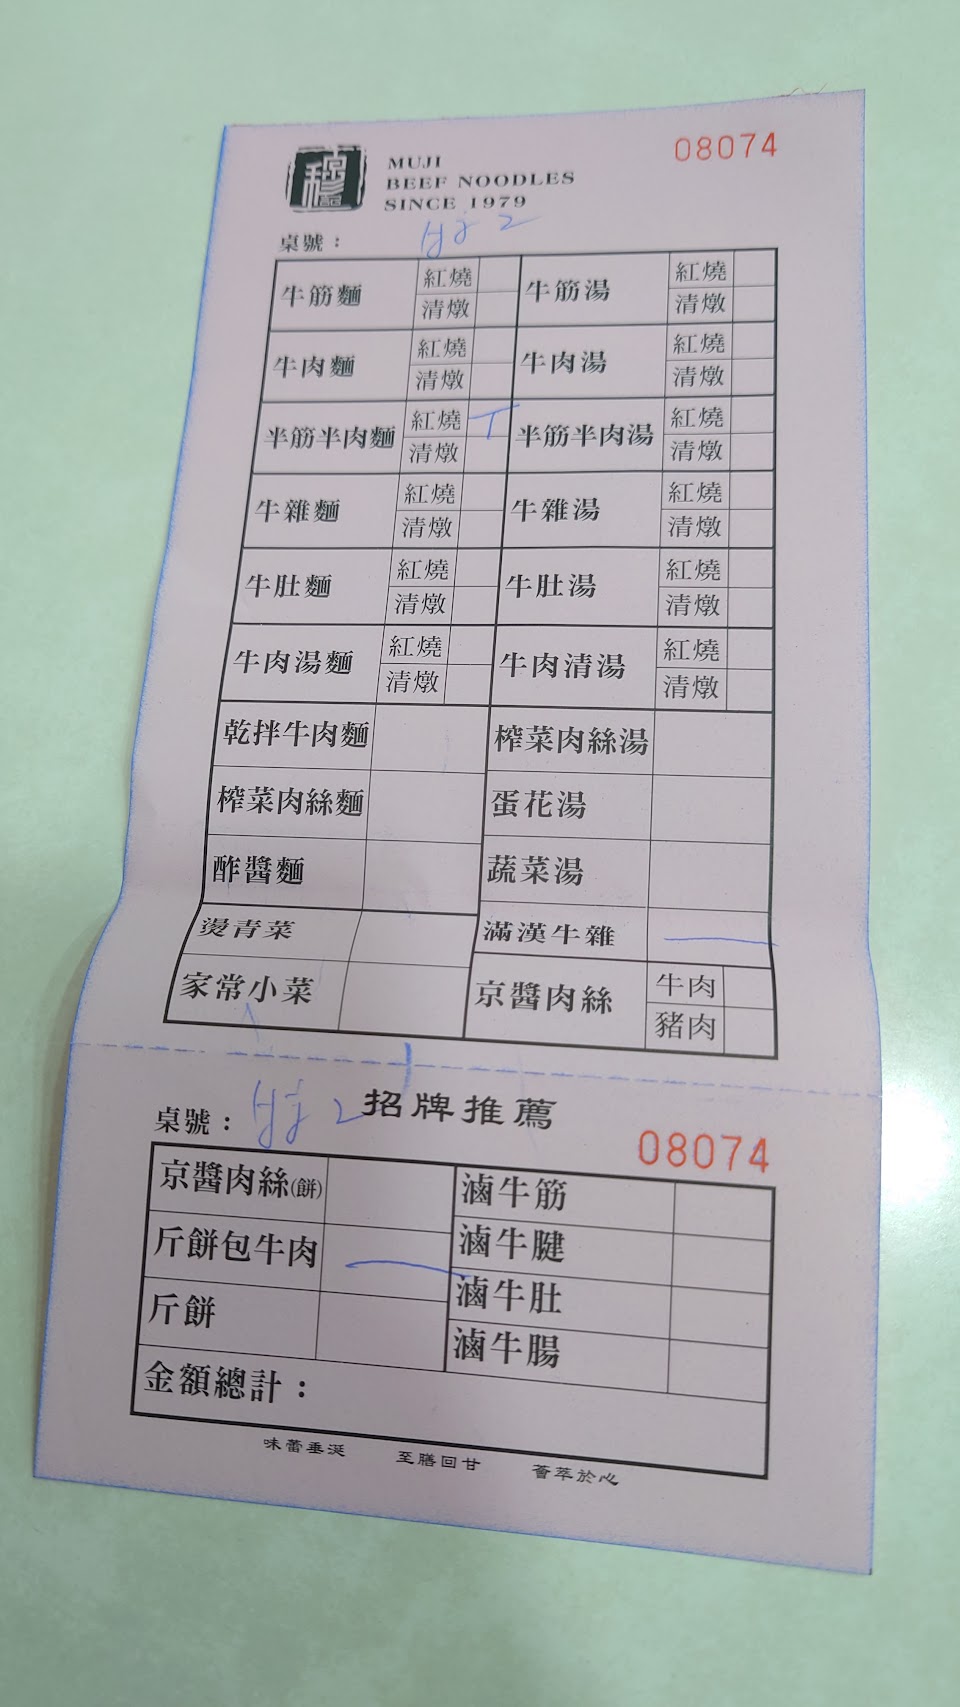 穆記
MUJI
BEEF NOODLES
SINCE 1979
08074
桌號：
牛筋麵 紅燒 清燉 牛筋湯 紅燒 清燉
牛肉麵 紅燒 清燉 牛肉湯 紅燒 清燉
半筋半肉麵 紅燒 清燉 半筋半肉湯 紅燒 清燉
牛雜麵 紅燒 清燉 牛雜湯 紅燒 清燉
牛肚麵 紅燒 清燉 牛肚湯 紅燒 清燉
牛肉湯麵 紅燒 清燉 牛肉清湯 紅燒 清燉
乾拌牛肉麵 榨菜肉絲湯
榨菜肉絲麵 蛋花湯
酢醬麵 蔬菜湯
燙青菜 滿漢牛雜
家常小菜 京醬肉絲 牛肉 豬肉
桌號： 招牌推薦 08074
京醬肉絲(餅) 滷牛筋
斤餅包牛肉 滷牛腱
斤餅 滷牛肚
滷牛腸
金額總計：
味蕾垂涎 至膳回甘 薈萃於心